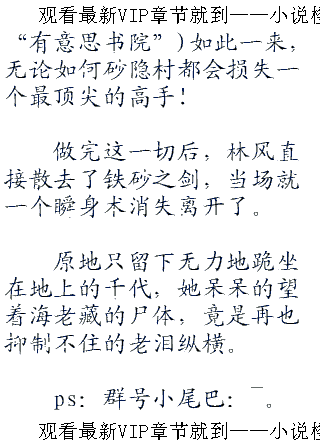 观看最新VIP章节就到——小说
“有意思书院”)如此一来，
无论如何砂隐村都会损失一
个最顶尖的高手！
做完这一切后，林风直
接散去了铁砂之剑，当场就
一个瞬身术消失离开了。
原地只留下无力地跪坐
在地上的千代，她呆呆的望
着海老藏的尸体，竟是再也
抑制不住的老泪纵横。
ps：群号小尾巴：¯。
观看最新VIP章节就到——小说